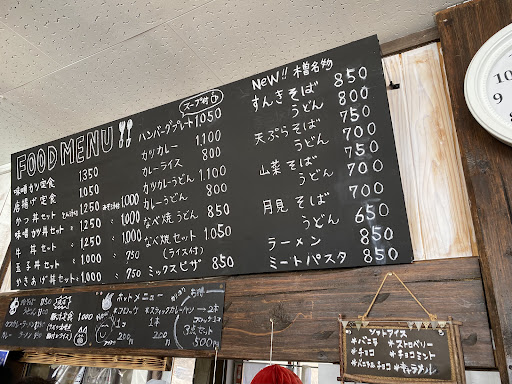 FOOD MENU
味噌カツ定食 1350
唐揚げ定食 1050
かつ丼セット 1250 1,000
味噌カツ丼セット 1250 1,000
牛丼セット 1250 1,000
玉子丼セット 1,000 750
かきあげ丼セット 1,000 750
スープ付
ハンバーグプレート 1,050
カツカレー 1,100
カレーライス 800
カツカレーうどん 1,100
カレーうどん 800
なべ焼うどん 850
なべ焼セット 1,050
(ライス付)
ミックスピザ 850
NEW!! 木曽名物
すんきそば 850
うどん 800
天ぷらそば 750
うどん 700
山菜そば 750
うどん 700
月見そば 700
うどん 650
ラーメン 850
ミートパスタ 850
ホットメニュー
コロッケ
1コ
200円
1本
3点セット
500円
ソフトアイス
*バニラ *ストロベリー
*チョコ *チョコミント
*バニラ&チョコ *キャラメル
10
9
8